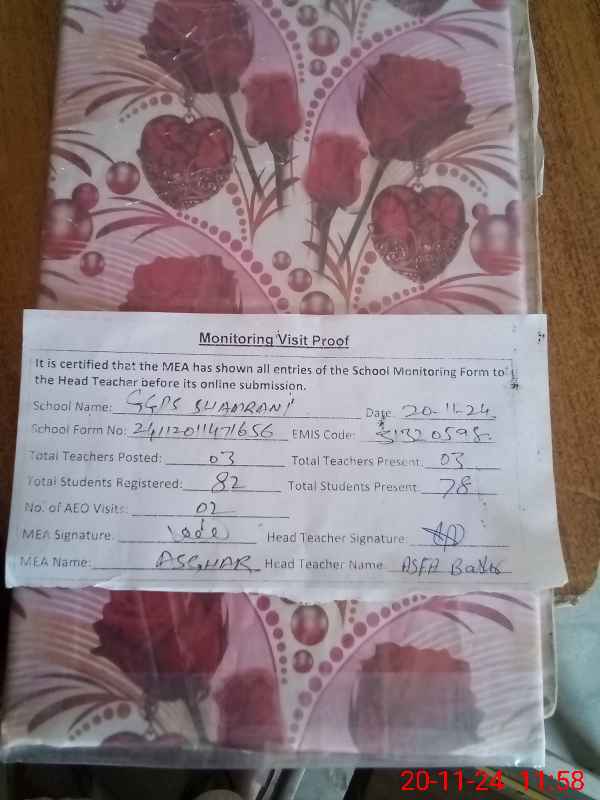 Monitoring Visit Proof
It is certified that the MEA has shown all entries of the School Monitoring Form to
the Head Teacher before its online submission.
School Name: GGPS SHAMRANI Date: 20-11-24
School Form No: 24112011471656 EMIS Code: 31320598
Total Teachers Posted: 03 Total Teachers Present: 03
Total Students Registered: 82 Total Students Present: 78
No. of AEO Visits: 02
MEA Signature: Head Teacher Signature:
MEA Name: ASGHAR Head Teacher Name ASFA
20-11-24 11:58